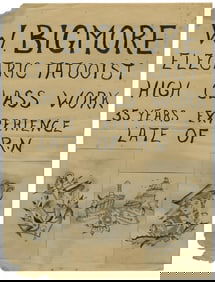 W. BIGMORE
ELECTRIC TATOOIST
HIGH CLASS WORK
35 YEARS EXPERIENCE
LATE OF R·N